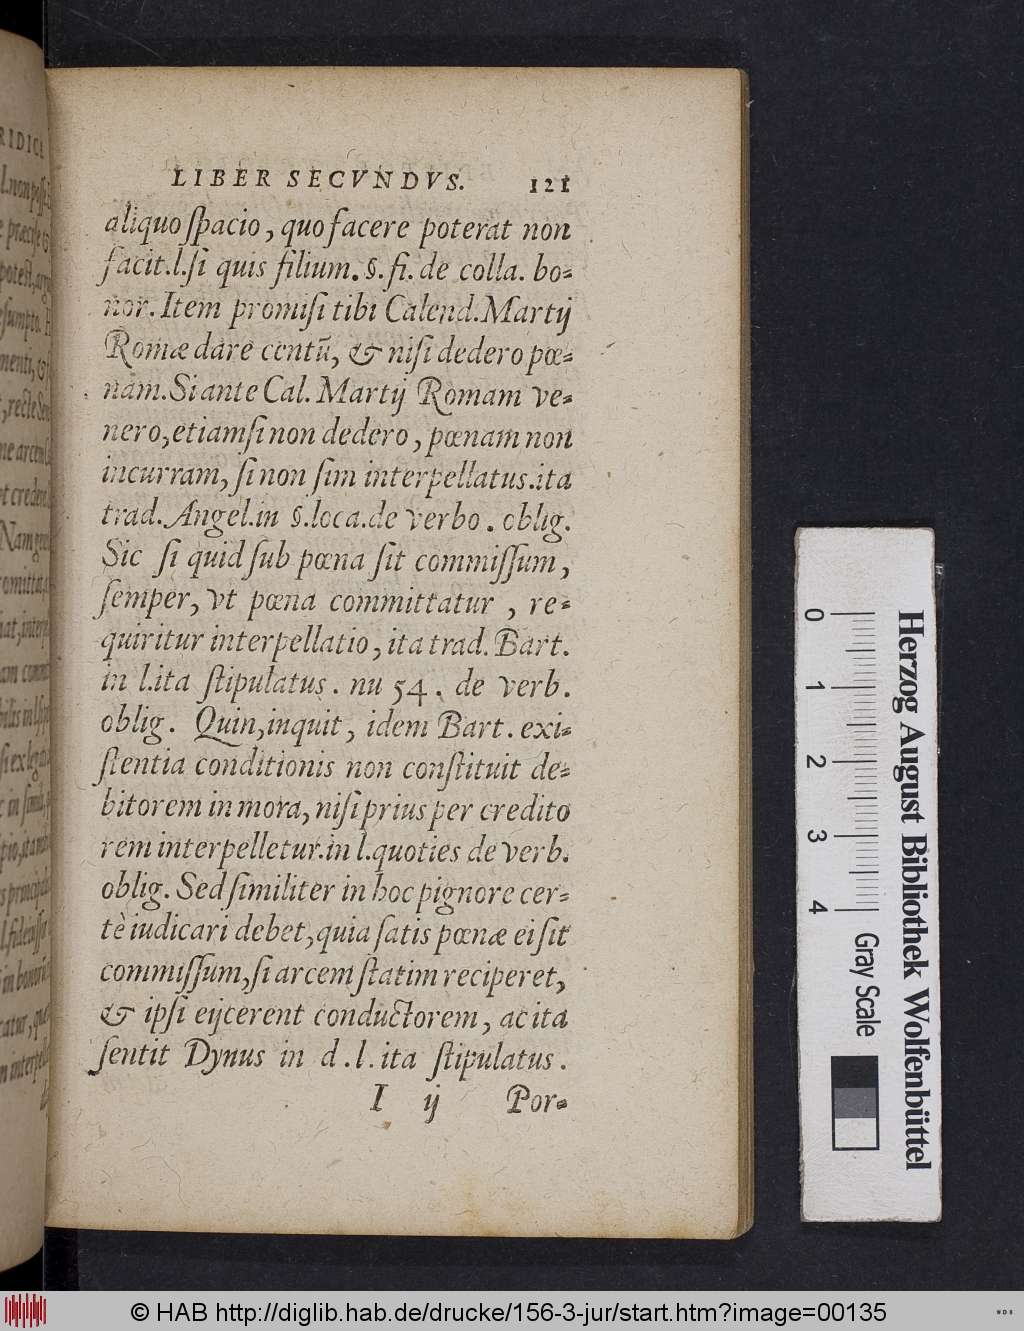 LIBER SECVNDVS. 121
aliquo ſpacio, quo facere poterat non
facit.l.ſi quis filium. §.fi. de colla. bo-
nor. Item promiſi tibi Calend.Martij
Romæ dare centũ, & niſi dedero pœ-
nam. Si ante Cal. Martij Romam ve-
nero, etiamſi non dedero, pœnam non
incurram, ſi non ſim interpellatus.ita
trad. Angel.in §.loca.de verbo. oblig.
Sic ſi quid ſub pœna ſit commiſſum,
ſemper, vt pœna committatur, re-
quiritur interpellatio, ita trad. Bart.
in l.ita ſtipulatus. nu 54. de verb.
oblig. Quin, inquit, idem Bart. exi-
ſtentia conditionis non conſtituit de-
bitorem in mora, niſi prius per credito
rem interpelletur.in l.quoties de verb.
oblig. Sed ſimiliter in hoc pignore cer-
tè iudicari debet, quia ſatis pœnæ ei ſit
commiſſum, ſi arcem ſtatim reciperet,
& ipſi eijcerent conductorem, ac ita
ſentit Dynus in d.l.ita ſtipulatus.
I ij Por-
0 1 2 3 4
Gray Scale
Herzog August Bibliothek Wolfenbüttel
© HAB http://diglib.hab.de/drucke/156-3-jur/start.htm?image=00135